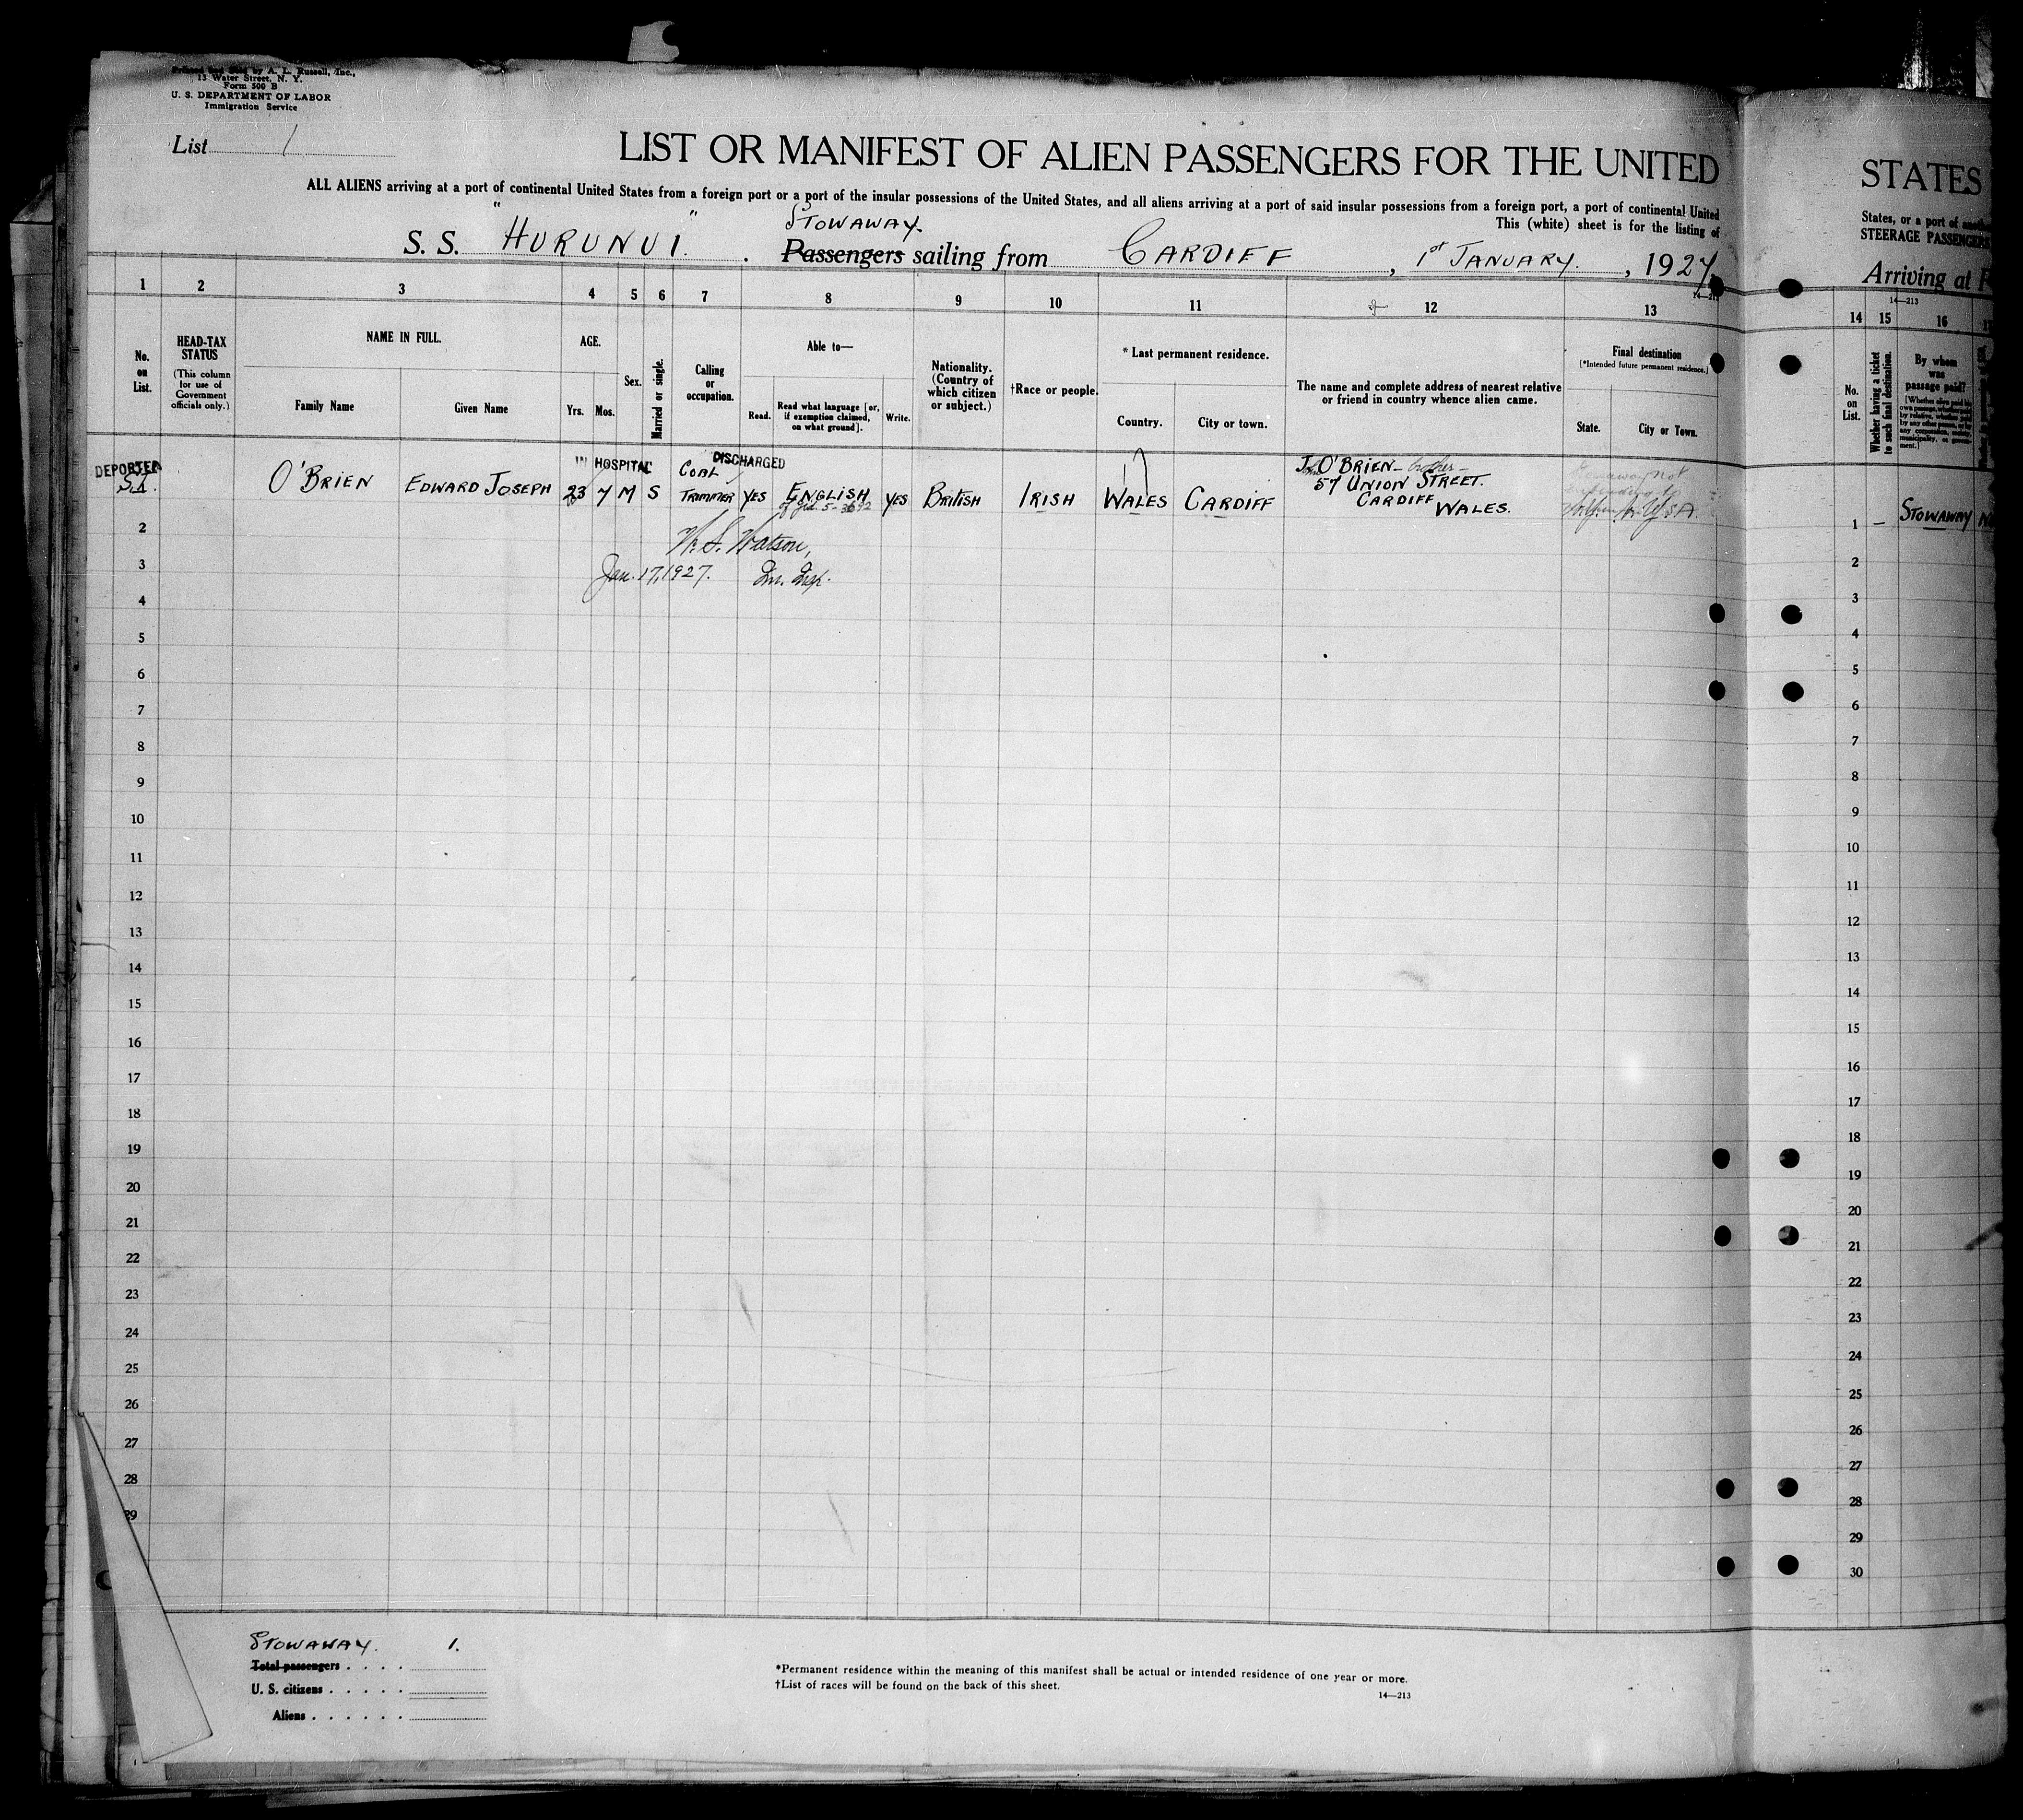 Printed and Sold by A. L. Russell, Inc.,
13 Water Street, N. Y.
Form 500 B
U. S. DEPARTMENT OF LABOR
Immigration Service
List 1
LIST OR MANIFEST OF ALIEN PASSENGERS FOR THE UNITED
STATES
ALL ALIENS arriving at a port of continental United States from a foreign port or a port of the insular possessions of the United States, and all aliens arriving at a port of said insular possessions from a foreign port, a port of continental United
States, or a port of
This (white) sheet is for the listing of
STEERAGE PASSENGERS
STOWAWAY.
S. S. "HURUNUI". Passengers sailing from CARDIFF, 1st JANUARY., 1927.
Arriving at
14—213
1 2 3 4 5 6 7 8 9 10 11 12 13
14 15 16
No. on List.
HEAD-TAX STATUS
(This column for use of Government officials only.)
NAME IN FULL.
Family Name
Given Name
AGE.
Yrs. Mos.
Sex.
Married or single.
Calling or occupation.
Able to—
Read.
Read what language [or, if exemption claimed, on what ground].
Write.
Nationality. (Country of which citizen or subject.)
†Race or people.
* Last permanent residence.
Country.
City or town.
The name and complete address of nearest relative or friend in country whence alien came.
Final destination
(*Intended future permanent residence.)
State.
City or Town.
14—213
No. on List.
Whether having a ticket to such final destination.
By whom was passage paid?
DEPORTED
S.I.
IN HOSPITAL DISCHARGED
O'BRIEN EDWARD JOSEPH 23 7 M S COAL TRIMMER YES ENGLISH YES BRITISH IRISH WALES CARDIFF
J. O'BRIEN – brother –
57 UNION STREET.
CARDIFF WALES.
U.S.A.
1 – STOWAWAY
W. S. Watson,
Jan. 17, 1927. Im. Insp.
2
3
4
5
6
7
8
9
10
11
12
13
14
15
16
17
18
19
20
21
22
23
24
25
26
27
28
29
2
3
4
5
6
7
8
9
10
11
12
13
14
15
16
17
18
19
20
21
22
23
24
25
26
27
28
29
30
STOWAWAY. 1.
Total passengers . . . .
U. S. citizens . . . . .
Aliens . . . . . .
*Permanent residence within the meaning of this manifest shall be actual or intended residence of one year or more.
†List of races will be found on the back of this sheet.
14—213